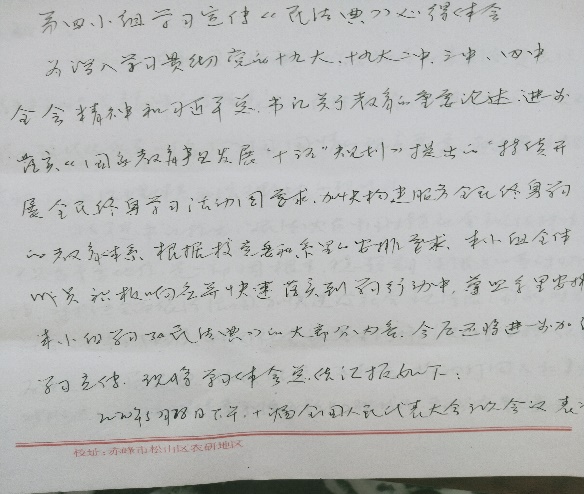 第四小组学习宣传《民法典》心得体会
为深入学习贯彻党的十九大、十九大二中、三中、四中
全会精神和习近平总书记关于教育的重要论述,进步
落实《国家教育事业发展"十三五"规划》提出的"持续开
展全民终身学习活动"的要求,加快构建服务全民终身学习
的教育体系,根据校党委和系里的安排要求,本小组全体
成员积极响应并快速落实到学习行动中,遵照系里安排
本小组学习了《民法典》的大部分内容,今后还将进一步加
学习宣传,现将学习体会总结汇报如下:
2020年5月28日下午十三届全国人民代表大会三次会议 表
校址:赤峰市松山区农研地区